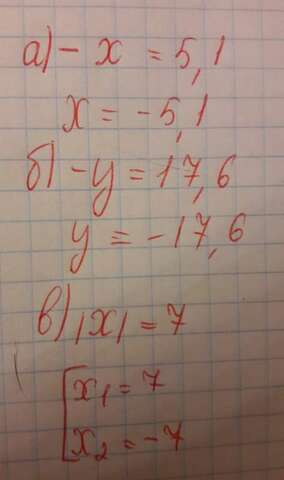 а) - x = 5,1
x = -5,1
б) -y = 17,6
y = -17,6
в) |x| = 7
[x₁ = 7
x₂ = -7